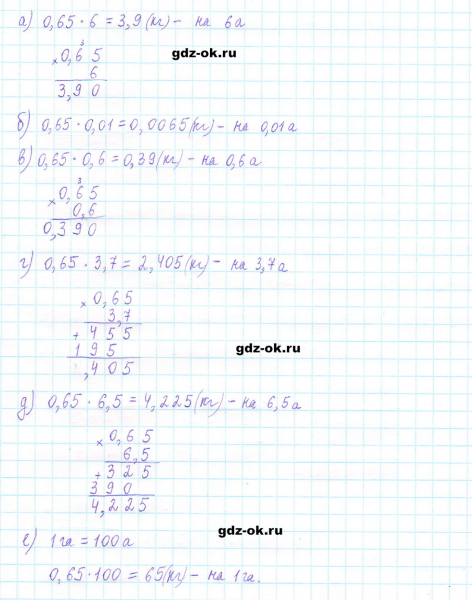 а) 0,65 · 6 = 3,9 (кг) - на 6а
3
× 0,65
6
3,90
gdz-ok.ru
б) 0,65 · 0,01 = 0,0065 (кг) - на 0,01а
в) 0,65 · 0,6 = 0,39 (кг) - на 0,6а
3
× 0,65
0,6
0,390
г) 0,65 · 3,7 = 2,405 (кг) - на 3,7а
× 0,65
3,7
+ 455
195
,405
gdz-ok.ru
д) 0,65 · 6,5 = 4,225 (кг) - на 6,5а
× 0,65
6,5
+ 325
390
4,225
gdz-ok.ru
е) 1га = 100а
0,65 · 100 = 65 (кг) - на 1га.